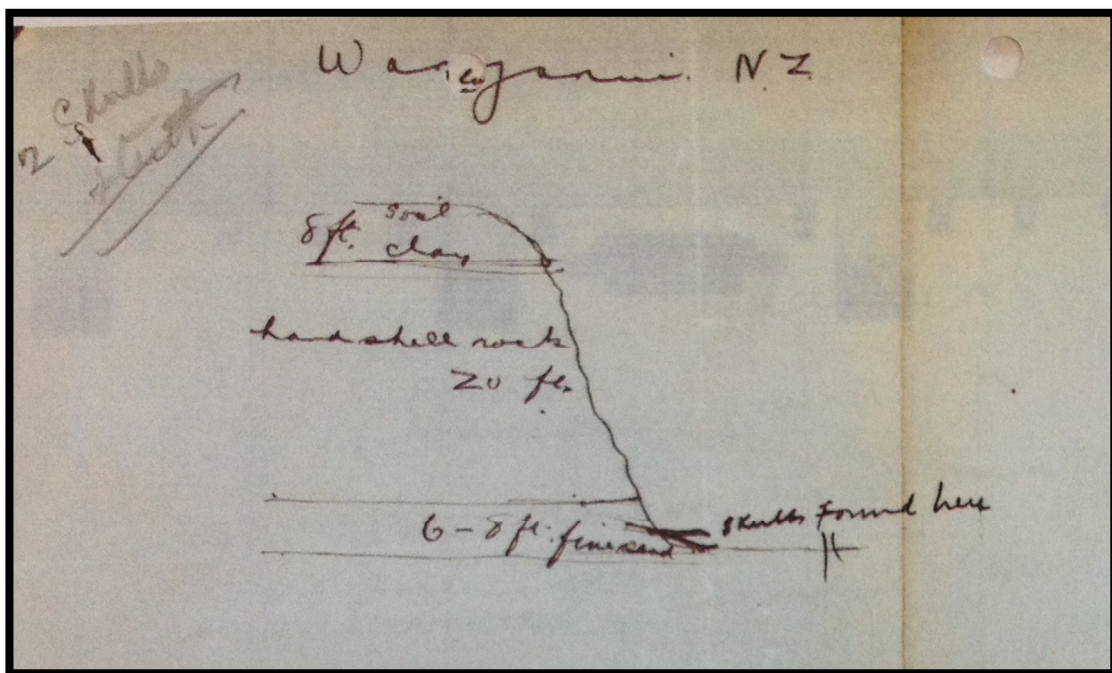 Wanganui NZ
2 Skulls
+ teeth
8 ft. soil
clay
hard shell rock
20 ft.
6-8 ft. fine sand
Skulls Found here